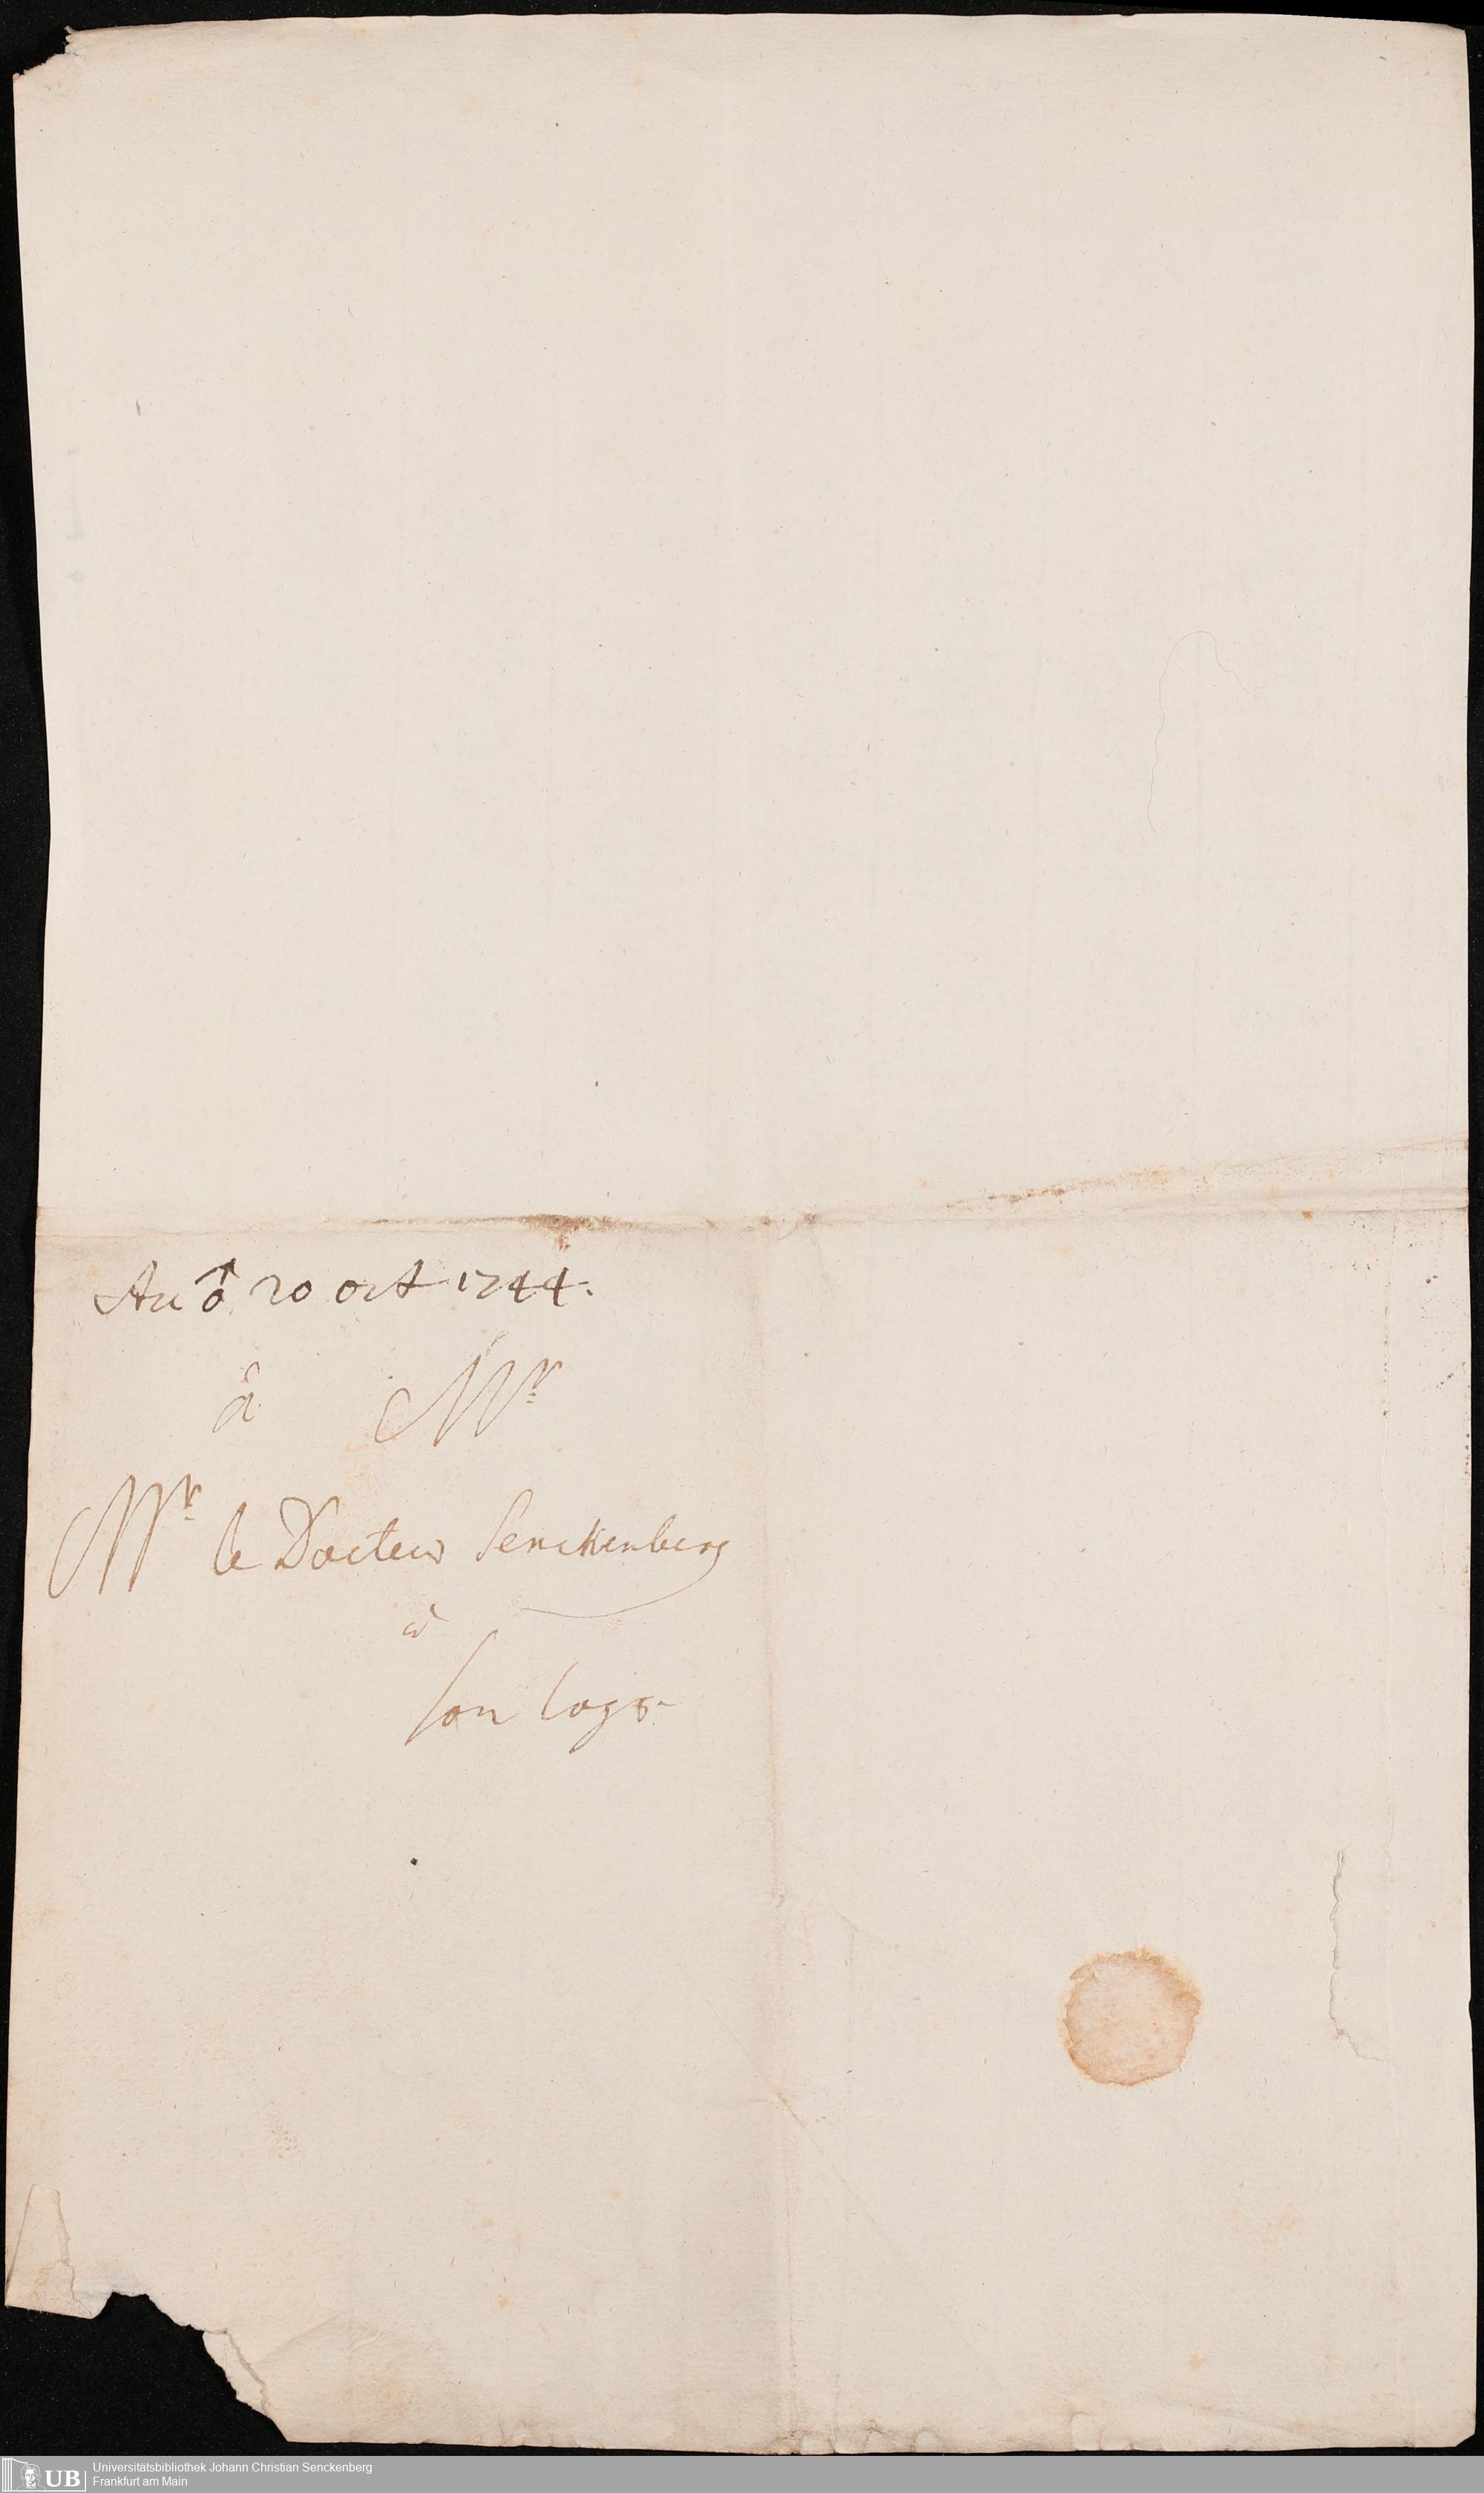 Au ♂ 20 oct 1744.
à Mr
Mr le Docteur Senckenberg
à
son logis.
UB
Universitätsbibliothek Johann Christian Senckenberg
Frankfurt am Main